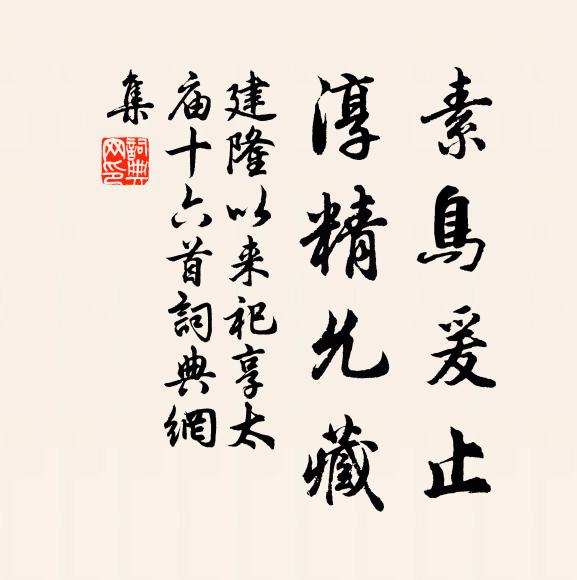 素鳥爰止
淳精允藏
建隆以来祀享太
庙十六首詞典網
集
詞典
网印